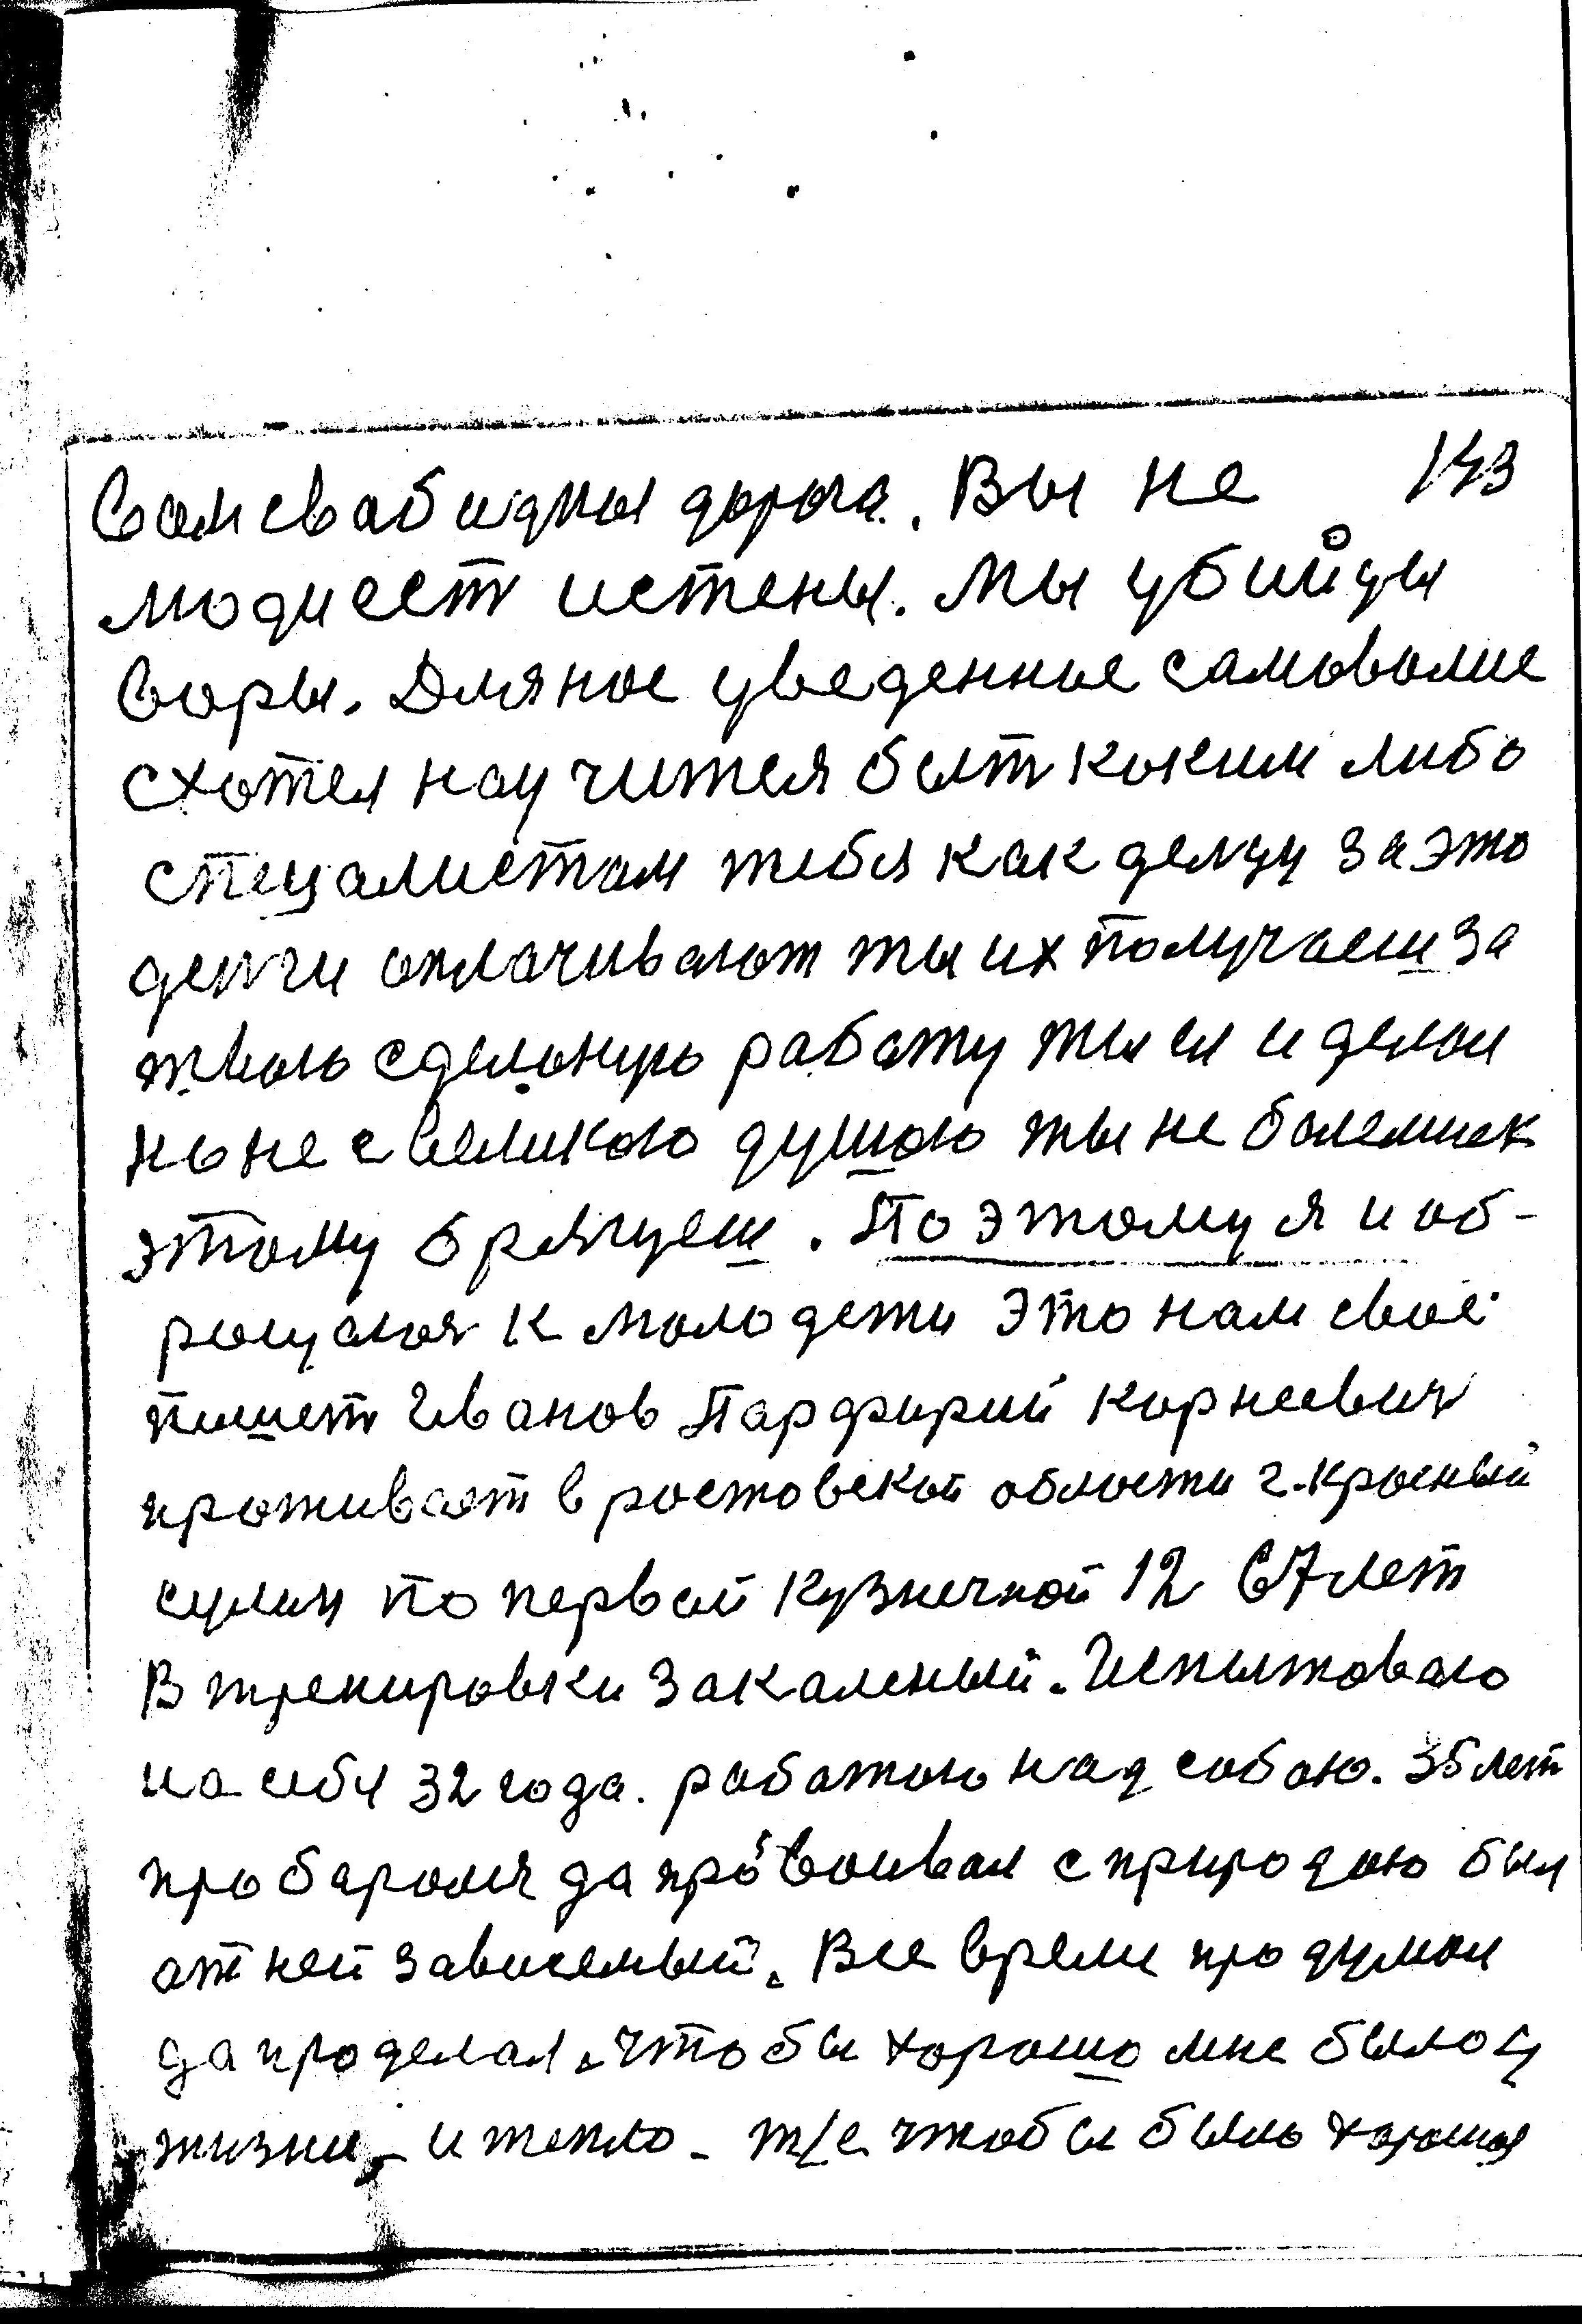 вам свабидныя дорога. Вы не 143
людиест истены. Мы убийцы
воры. Для нас уведенные самоволие
схотел научится быт каким либо
спецалистам тебя как делцу за это
денги оплачивают ты их получаеш за
твою сделоную работу ты ел и делал
но не с великою душою ты не болелщек
этому брязцеш. По этому я и об-
ращаюя к молодежи это нам свое
пишет Иванов Парфирий Корнеевич
проживает в ростовской области г. Красный
сулин по первой Кузнечной 12 67 лет
В тренировки закаленый. Испытоваю
на себя 32 года. работаю над собою. 35 лет
пробаролся да провоивал с природою был
от ней зависемый. Все время продумал
да проделал, чтобы хорошо мне было в
жизни, и тепло - т/е чтобы было хорошо